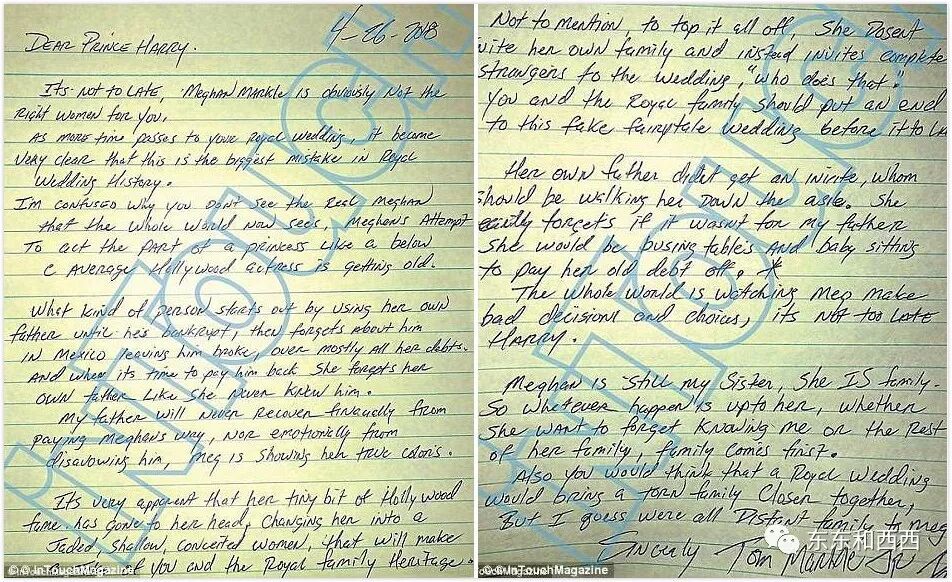 4-26-2018
DEAR PRINCE HARRY.
ITS NOT TO LATE, MEGHAN MARKLE IS OBVIOUSLY NOT THE
RIGHT WOMEN FOR YOU.
AS MORE TIME PASSES TO YOUR ROYAL WEDDING, IT BECAME
VERY CLEAR THAT THIS IS THE BIGGEST MISTAKE IN ROYAL
WEDDING HISTORY.
IM CONFUSED WHY YOU DON'T SEE THE REAL MEGHAN
THAT THE WHOLE WORLD NOW SEES, MEGHANS ATTEMPT
TO ACT THE PART OF A PRINCESS LIKE A BELOW
C AVERAGE HOLLYWOOD ACTRESS IS GETTING OLD.
WHAT KIND OF PERSON STARTS OUT BY USING HER OWN
FATHER UNTIL HE'S BANKRUPT, THEN FORGETS ABOUT HIM
IN MEXICO LEAVING HIM BROKE, OVER MOSTLY ALL HER DEBTS.
AND WHEN ITS TIME TO PAY HIM BACK SHE FORGETS HER
OWN FATHER LIKE SHE NEVER KNEW HIM.
MY FATHER WILL NEVER RECOVER FINAUELLY FROM
PAYING MEGHANS WAY, NOR EMOTIONALLY FROM
DISAVOWING HIM, MEG IS SHOWING HER TRUE COLORS.
ITS VERY APPARENT THAT HER TINY BIT OF HOLLYWOOD
FAME HAS GONE TO HER HEAD, CHANGING HER INTO A
JADED, SHALLOW, CONCEITED WOMEN, THAT WILL MAKE
OF YOU AND THE ROYAL FAMILY HERITAGE
© InTouchMagazine
NOT TO MENTION, TO TOP IT ALL OFF SHE DOSENT
VITE HER OWN FAMILY AND INSTEAD INVITES COMPLETE
STRANGERS TO THE WEDDING, "WHO DOES THAT."
YOU AND THE ROYAL FAMILY SHOULD PUT AN END
TO THIS FAKE FAIRYTALE WEDDING BEFORE IT TO LA
HER OWN FATHER DIDN'T GET AN INVITE, WHOM
HOULD BE WALKING HER DOWN THE ASLE. SHE
FORGETS IF IT WASN'T FOR MY FATHER
SHE WOULD BE BUSING TABLES AND BABY SITTING
TO PAY HER OLD DEBT OFF. *
THE WHOLE WORLD IS WATCHING MEG MAKE
BAD DECISIONS AND CHOICES, ITS NOT TOO LATE
HARRY.
MEGHAN IS STILL MY SISTER, SHE IS FAMILY.
SO WHATEVER HAPPEN IS UP TO HER, WHETHER
SHE WANT TO FORGET KNOWING ME OR THE REST
OF HER FAMILY, FAMILY COMES FIRST.
ALSO YOU WOULD THINK THAT A ROYAL WEDDING
WOULD BRING A TORN FAMILY CLOSER TOGETHER,
BUT I GUESS WERE ALL DISTANT FAMILY TO MEG
SINCERLY TOM MARKLE JR
© InTouchMagazine
东东和西西
INTOUCH
INTOUCH